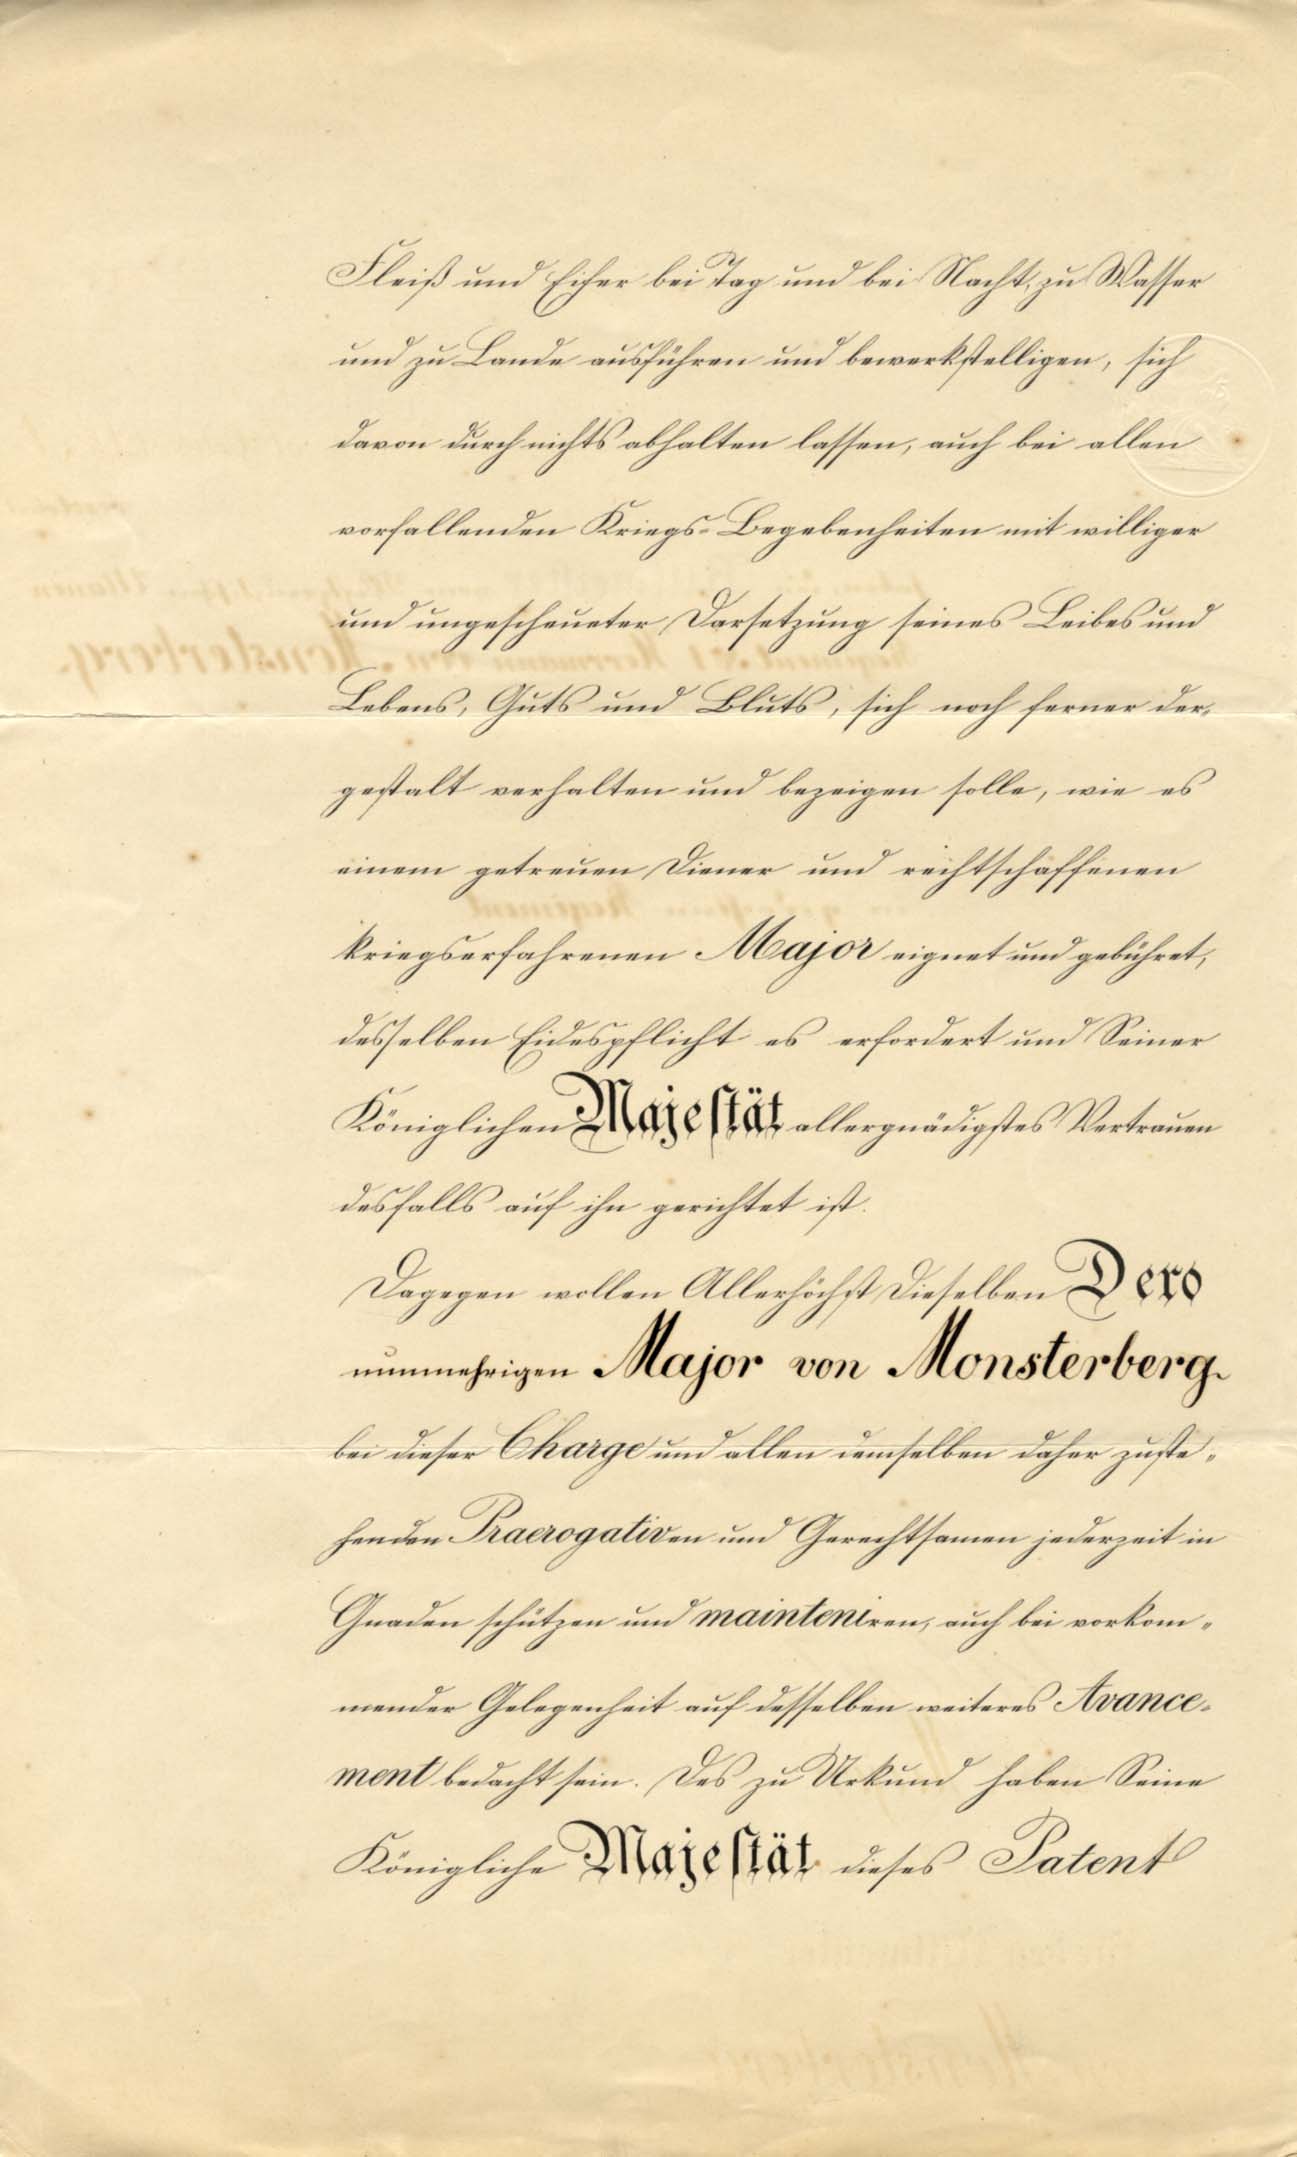 Fleiß und Eifer bei Tag und bei Nacht, zu Wasser
und zu Lande ausführen und bewerkstelligen, sich
davon durch nichts abhalten lassen, auch bei allen
vorfallenden Kriegs-Begebenheiten mit williger
und ungescheueter Darsetzung seines Leibes und
Lebens, Guts und Bluts, sich noch ferner der-
gestalt verhalten und bezeigen solle, wie es
einem getreuen Diener und rechtschaffenen
kriegserfahrenen Major eignet und gebühret,
desselben Eidespflicht es erfordert und Seiner
Königlichen Majestät allergnädigstes Vertrauen
desfalls auf ihn gerichtet ist.
Dagegen wollen Allerhöchst Dieselben Dero
nunmehrigen Major von Monsterberg.
bei dieser Charge und allen demselben daher zuste-
henden Praerogativen und Gerechtsamen jederzeit in
Gnaden schützen und mainteniren, auch bei vorkom-
mender Gelegenheit auf desselben weiteres Avance-
ment bedacht sein. Des zu Urkund haben Seine
Königliche Majestät dieses Patent